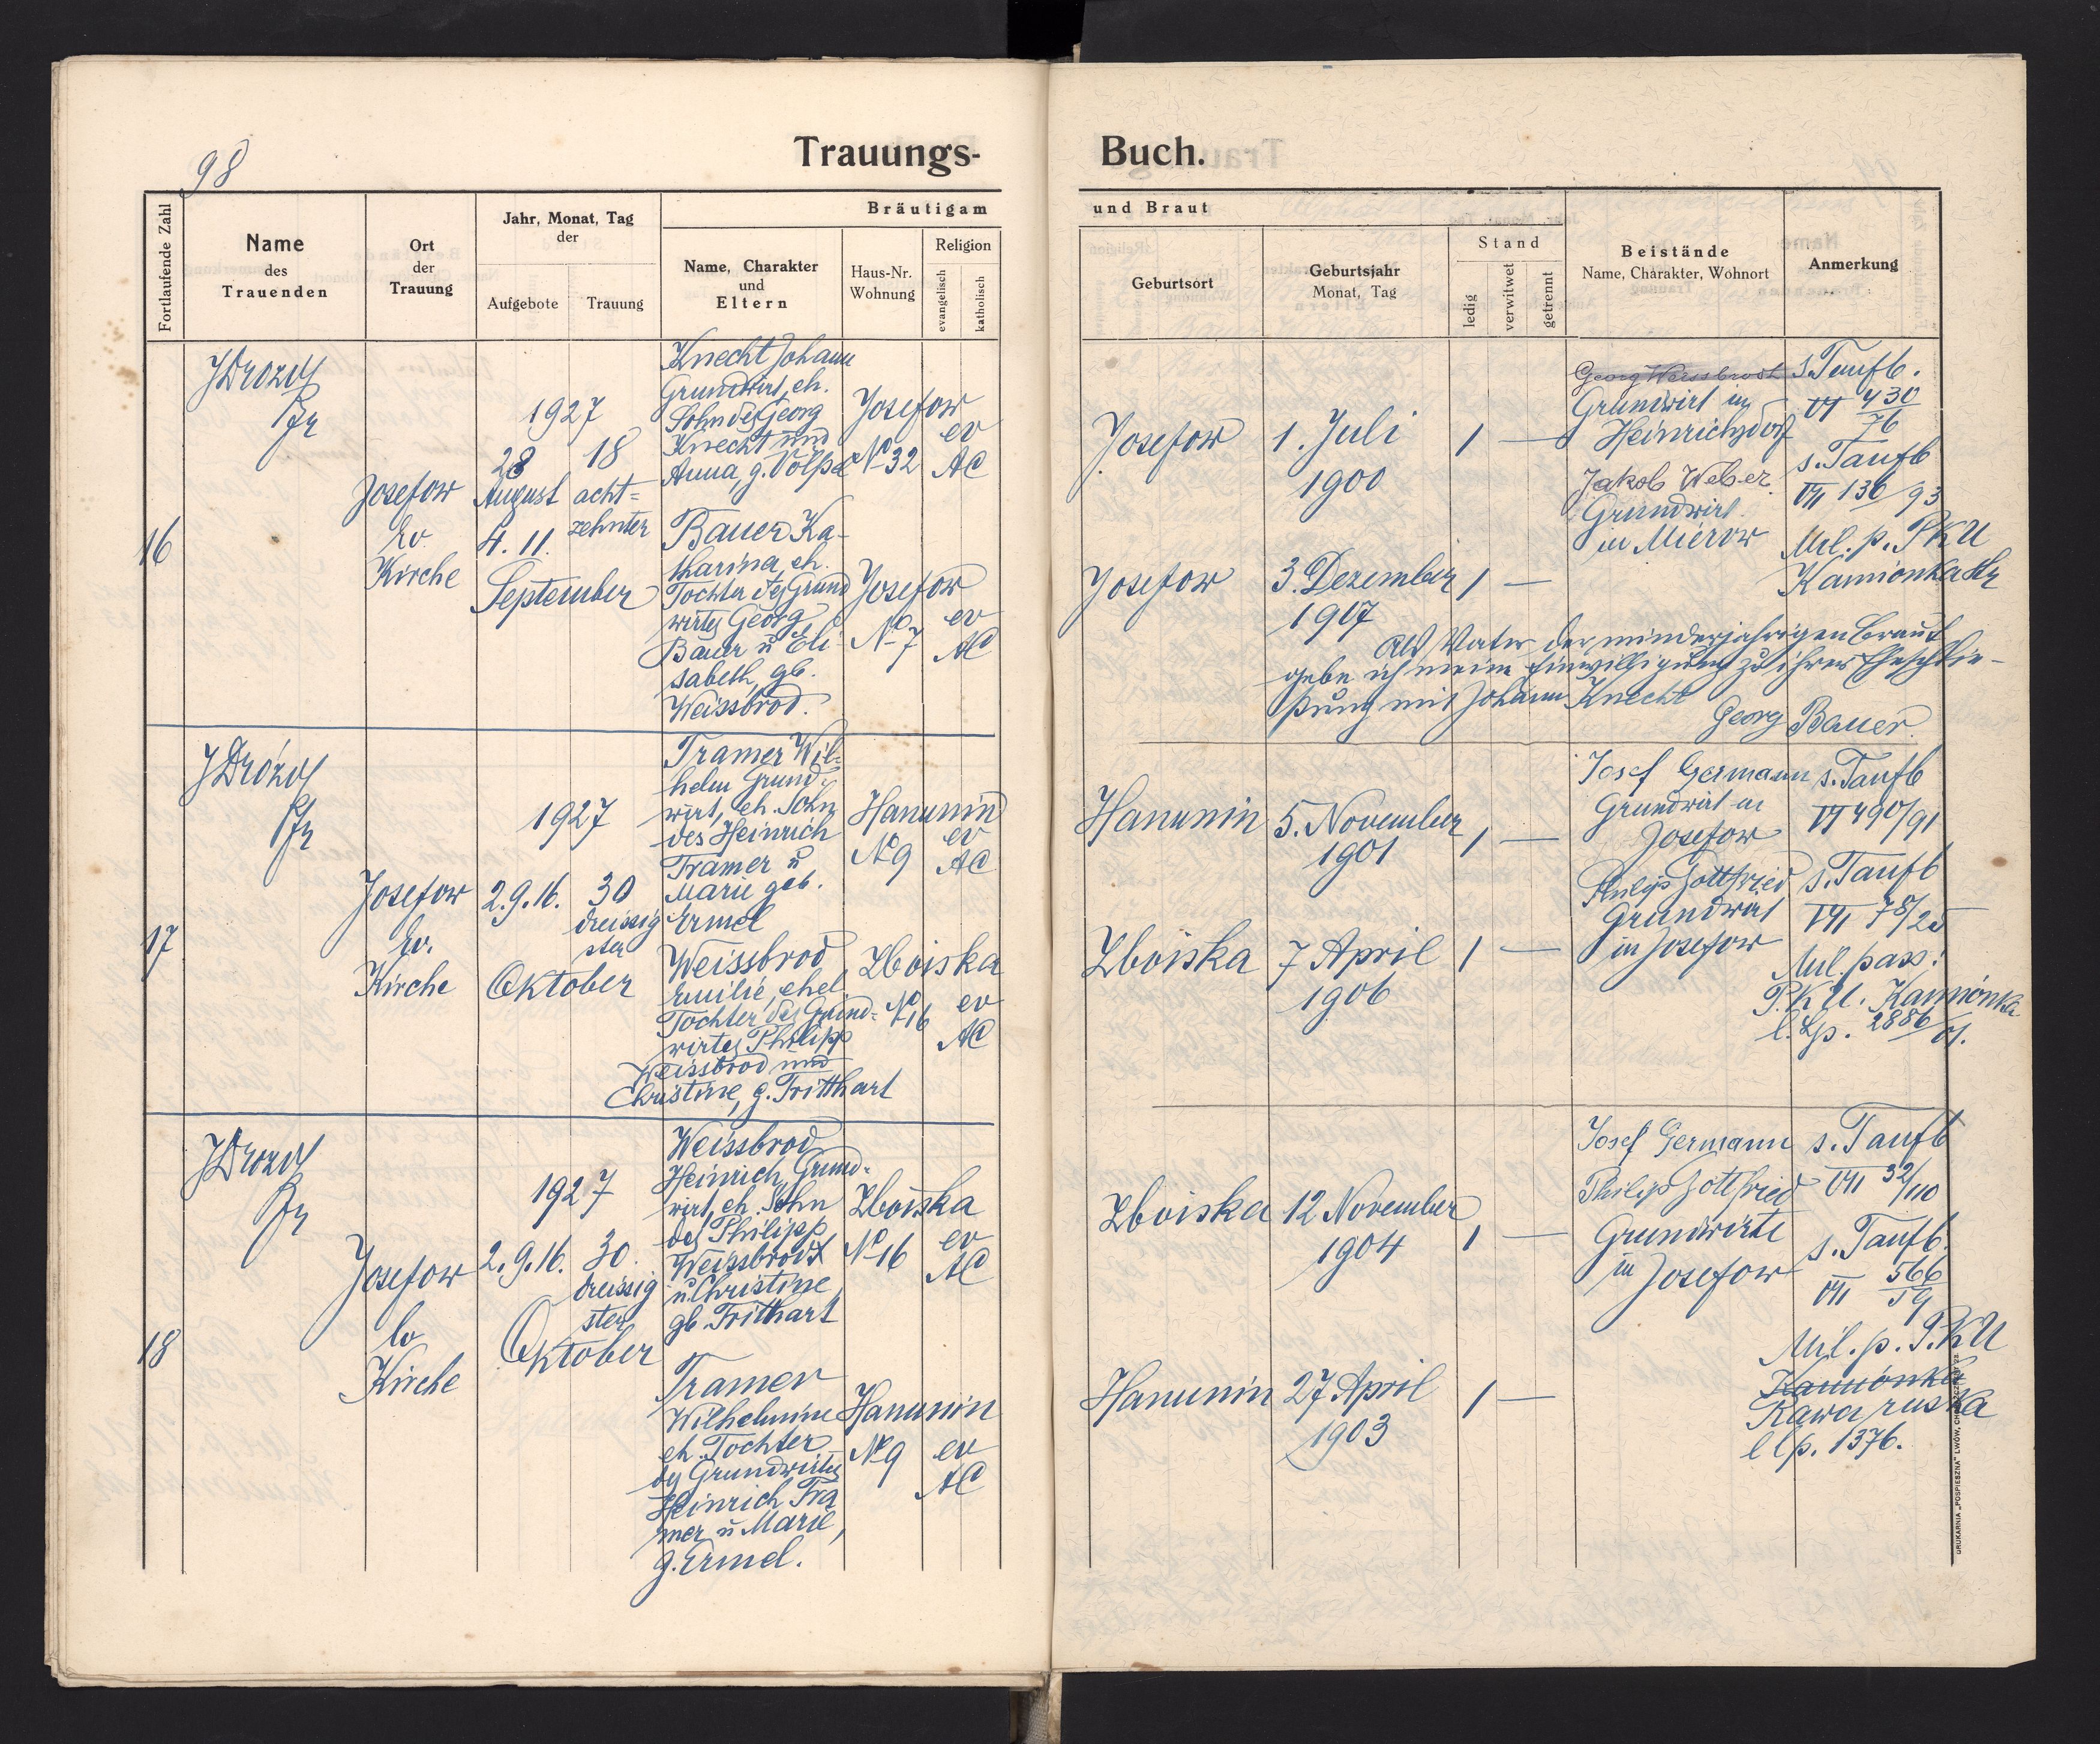 98
Trauungs-Buch.
Fortlaufende Zahl
Name
des
Trauenden
Ort
der
Trauung
Jahr, Monat, Tag
der
Aufgebote
Trauung
Bräutigam
Name, Charakter
und
Eltern
Haus-Nr.
Wohnung
Religion
evangelisch
katholisch
und Braut
Geburtsort
Geburtsjahr
Monat, Tag
Stand
ledig
verwitwet
getrennt
Beistände
Name, Charakter, Wohnort
Anmerkung
16
JDrozd
Pfr
Josefow
Ev.
Kirche
1927
28
August
4. 11.
September
18
acht-
zehnter
Knecht Johann
Grundwirt, eh.
Sohn des Georg
Knecht und
Anna, g. Völpel
Josefow
No 32
ev
AC
Bauer Ka-
tharina, eh.
Tochter des Grund
wirtes Georg
Bauer u Eli
sabeth, gb.
Weissbrod.
Josefow
No 7
ev
AC
Josefow
1. Juli
1900
1 —
Georg Weissbrodt
Grundwirt in
Heinrichsdorf
Jakob Weber
Grundwirt
in Mierow
s. Taufb.
VI 430
76
s. Taufb
VII 136/93
Mil. p. PKU
Kamionka Str
Josefow
3. Dezember
1907
1 —
Als Vater der minderjahrigen Braut
gebe ich meine Einwilligung zu ihrer Eheschlie-
ßung mit Johann Knecht
Georg Bauer.
17
JDrozd
Pfr
Josefow
Ev.
Kirche
1927
2. 9. 16.
Oktober
30
dreissig
ster
Tramer Wil-
helm Grund-
wirt, eh. Sohn
des Heinrich
Tramer u
Marie geb.
Ermel
Hanunin
No 9
ev
AC
Weissbrod
Emilie, ehel.
Tochter des Grund-
wirtes Philipp
Weissbrod und
Christine, g. Tritthart
Zboiska
No 16
ev
AC
Hanunin
5. November
1901
1 —
Josef Germann
Grundwirt in
Josefow
Philipp Gottfried
Grundwirt
in Josefow
s. Taufb
VI 490/91
s. Taufb
VII 78/25
Mil. pass:
P.K.U. Kamionka
l. Lp. 2886/01.
Zboiska
7 April
1906
1 —
18
JDrozd
Pfr
Josefow
Ev
Kirche
1927
2. 9. 16.
Oktober
30
dreissig
ster
Weissbrod
Heinrich, Grund-
wirt, eh. Sohn
des Philipp
Weissbrodt
u. Christine
gb. Tritthart
Zboiska
No 16
ev
AC
Tramer
Wilhelmine
eh. Tochter
des Grundwirtes
Heinrich Tra
mer u Marie,
g. Ermel.
Hanunin
No 9
ev
AC
Zboiska
12 November
1904
1 —
Josef Germann
Philipp Gottfried
Grundwirte
in Josefow
s. Taufb
VII 32/110
s. Taufb.
VII 566
59
Mil. p. P.KU
Kamionka
Rawa ruska
l lp. 1376.
Hanunin
27 April
1903
1 —
DRUKARNIA „POSPIESZNA" LWÓW, CHORĄŻCZYZNY